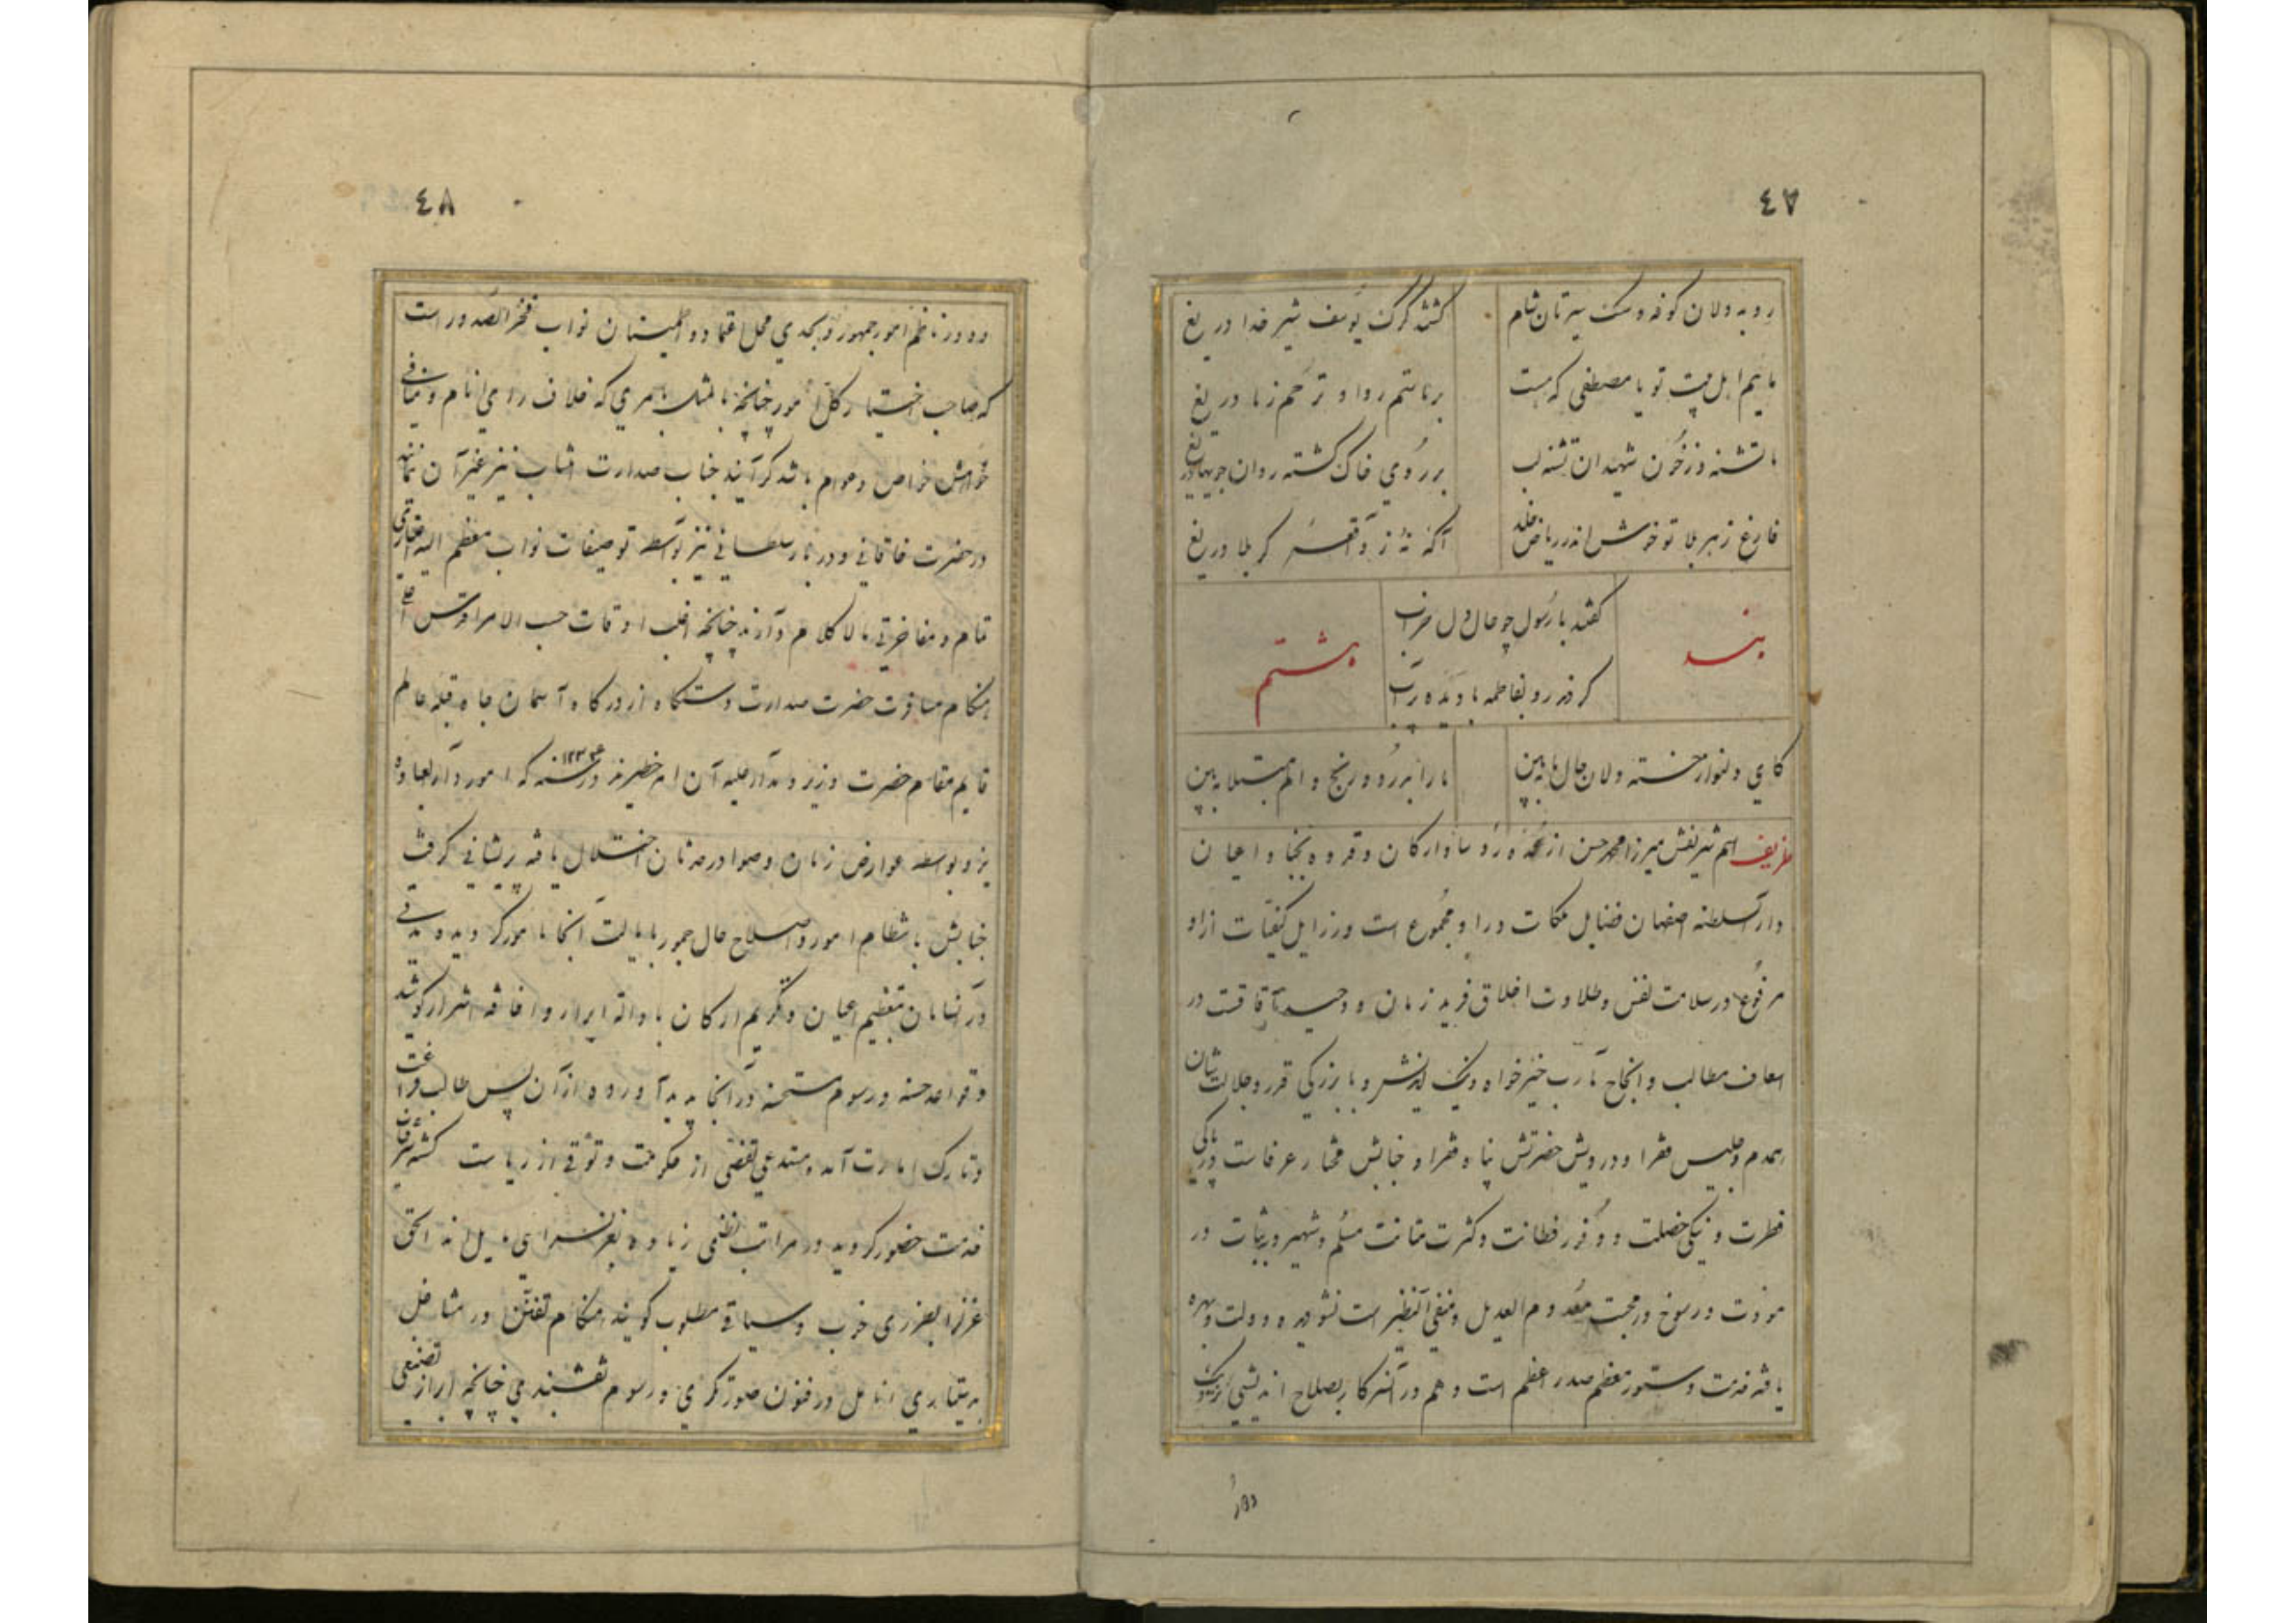 ٤٧
روبه دلان کوفه و سگ سیرتان شام
کشتند گرگ یوسف شیر خدا دریغ
مائیم اهل بیت تو یا مصطفی که هست
بر ما ستم روا و ترحم ز ما دریغ
ما تشنه و ز خون شهیدان تشنه لب
بر روی خاک گشته روان جویها دریغ
فارغ ز هر بلا تو خوش اندر ریاض خلد
آگه نهٔ ز واقعهٔ کربلا دریغ
بند
گفتند با رسول چو حال دل خراب
هشتم
کردند رو بفاطمه با دیده پرآب
کای دلنواز خسته دلان حال ما ببین
ما را بدرد و رنج و الم مبتلا ببین
ظریف اسم شریفش میرزا محمدحسن از عمده رؤسا و ارکان و قدوه نجبا و اعیان
دارالسلطنه اصفهان فضایل ملکات در او مجموع است و رزایل کیفیات از او
مرفوع در سلامت نفس و طلاوت اخلاق فرید زمان و وحید آفاقست در
اسعاف مطالب و انجاح مآرب خیرخواه و نیک اندیش و با بزرگی قدر و جلالت شان
همدم و جلیس فقرا و درویش حضرتش پناه فقرا و جنابش مختار عرفاست در پاکی
فطرت و نیکی خصلت و وفور فطانت و کثرت متانت مسلم و شهیر و بثبات در
مودت و رسوخ در محبت معدوم العدیل و منفی النظیر است نشو در دولت و بهره
یافته خدمت دستور معظم صدر اعظم است و هم در آن سرکار بصلاح اندیشی نزدیک
و در
٤٨
و در ناظم امور جمهور و بجدی محل اعتماد و اطمینان نواب فخرالصدور است
که صاحب اختیار کل امور چنانچه بامری که خلاف رای انام و منافی
خواهش خواص و عوام باشد گرایند جناب صدارت انتساب نیز غیر آن نمانند
در حضرت خاقانی و دربار سلطانی نیز بواسطه توصیفات نواب معظم الیه افتخاری
تمام و مفاخرتی مالاکلام دارند چنانچه اغلب اوقات حسب الامر اقدس اعلی
هنگام مسافرت حضرت صدارت دستگاه از درگاه آسمان جاه قبله عالم
قایم مقام حضرت وزیر و مدار علیه آن امر خطیرند در سنه ۱۲۳۴ که امور دارالعباده
یزد بواسطه عوارض زمان و صوادر حدثان اختلال یافته پریشانی گرفت
جنابش بانتظام امور و اصلاح حال جمهور بایالت آنجا مامور گردید و مدتی
در آنسامان بتعظیم اعیان و تکریم ارکان با ابرار و اشرار کوشید
و قواعد حسنه و رسوم مستحسنه در آنجا پدید آورده از آن پس طالب فراغت
و تارک امارت آمد و مستدعی تفصی از حکومت و توقی از ریاست گشته شرفیاب
خدمت حضور گردید در مراتب نظمی زیاده بغزلسرایی مایل اند الحق
غزل را بطرزی خوب و سیاقی مطلوب گویند هنگام تفنن در مشاغل
به دستیاری انامل در فنون صورتگری و رسوم نقشبندی چنانچه ابراز تصنعی